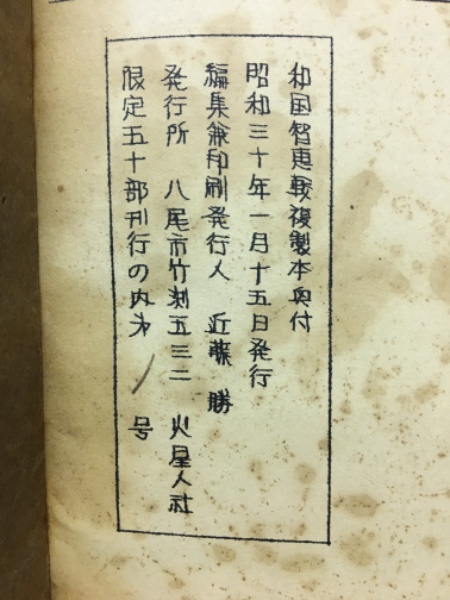 和国智恵較複製本奥付
昭和三十年一月十五日発行
編集兼印刷発行人 近藤 勝
発行所 八尾市竹渕五三二 火星人社
限定五十部刊行の内才 1 号